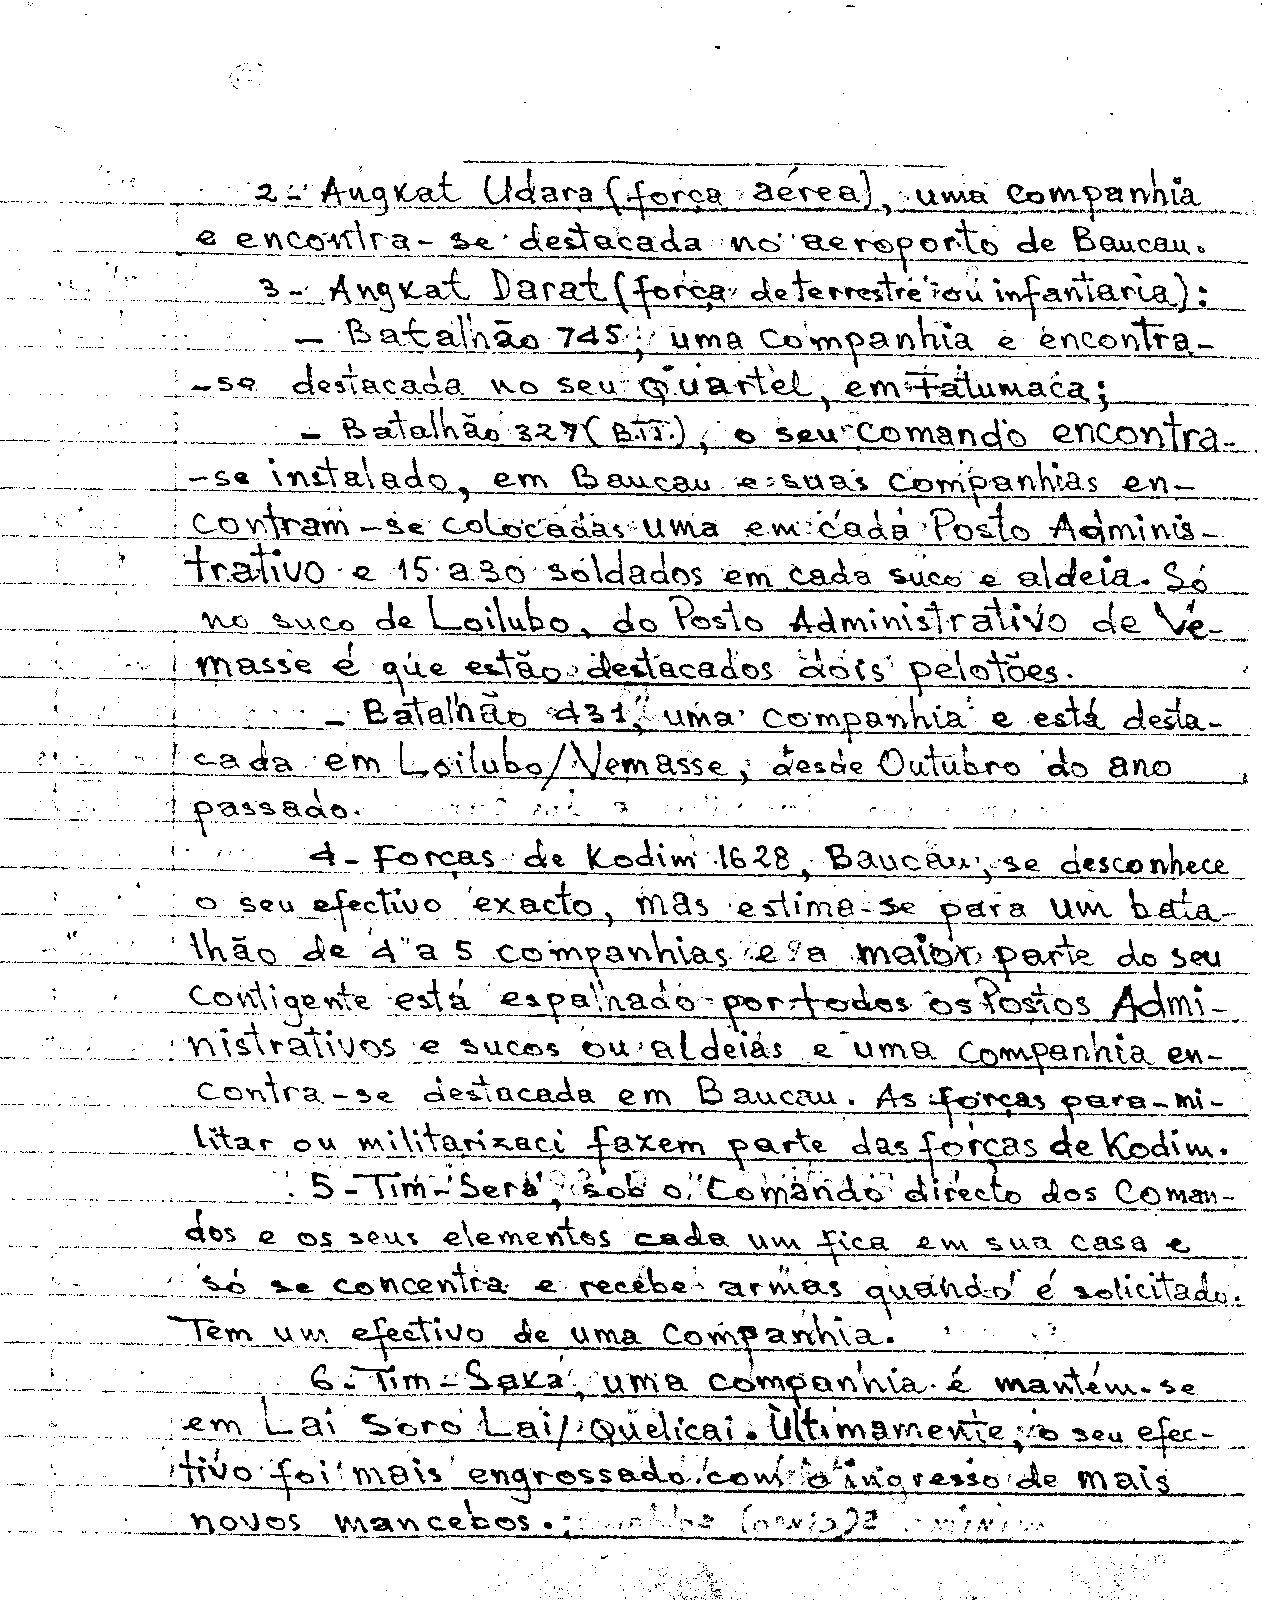 2- Angkat Udara (força aérea), uma companhia
e encontra-se destacada no aeroporto de Baucau.
3- Angkat Darat (força de terrestre ou infantaria):
- Batalhão 745, uma companhia e encontra-
-se destacada no seu Quartel, em Fatumaca;
- Batalhão 327 (B.T.T.), o seu comando encontra-
-se instalado, em Baucau e suas companhias en-
contram-se colocadas uma em cada Posto Adminis-
trativo e 15 a 30 soldados em cada suco e aldeia. Só
no suco de Loilubo, do Posto Administrativo de Ve-
masse é que estão destacados dois pelotões.
- Batalhão 431, uma companhia e está desta-
cada em Loilubo/Vemasse, desde Outubro do ano
passado.
4- Forças de Kodim 1628, Baucau, se desconhece
o seu efectivo exacto, mas estima-se para um bata-
lhão de 4 a 5 companhias e a maior parte do seu
contigente está espalhado por todos os Postos Admi-
nistrativos e sucos ou aldeias e uma companhia en-
contra-se destacada em Baucau. As forças para-mi-
litar ou militarizaci fazem parte das forças de Kodim.
5- Tim-Sera, sob o Comando directo dos Coman-
dos e os seus elementos cada um fica em sua casa e
só se concentra e recebe armas quando é solicitado.
Tem um efectivo de uma companhia.
6- Tim-Saka, uma companhia é mantém-se
em Lai Soro Lai/Quelicai. Ùltimamente, o seu efec-
tivo foi mais engrossado com o ingresso de mais
novos mancebos.